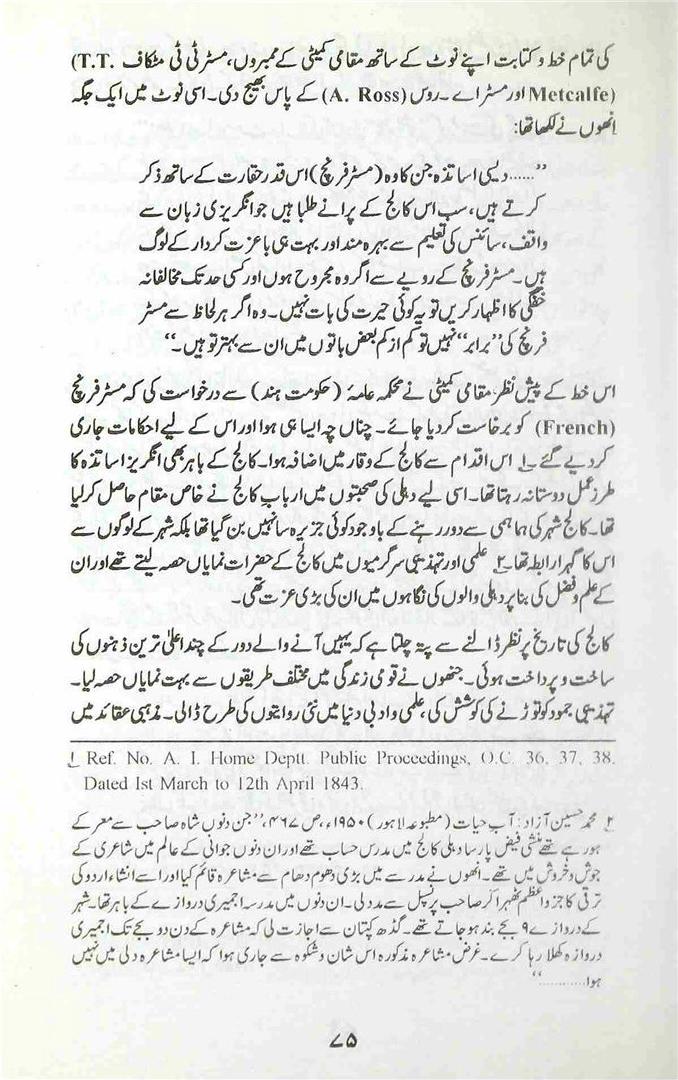 کی تمام خط و کتابت اپنے نوٹ کے ساتھ مقامی کمیٹی کے ممبروں، مسٹر ٹی ٹی مٹکاف (T.T.
Metcalfe) اور مسٹر اے۔ روس (A. Ross) کے پاس بھیج دی۔ اسی نوٹ میں ایک جگہ
انھوں نے لکھا تھا:
”......دیسی اساتذہ جن کا وہ (مسٹر فرنچ) اس قدر حقارت کے ساتھ ذکر
کرتے ہیں، سب اس کالج کے پرانے طلبا ہیں جو انگریزی زبان سے
واقف، سائنس کی تعلیم سے بہرہ مند اور بہت ہی باعزت کردار کے لوگ
ہیں۔ مسٹر فرنچ کے رویے سے اگر وہ مجروح ہوں اور کسی حد تک مخالفانہ
خفگی کا اظہار کریں تو یہ کوئی حیرت کی بات نہیں۔ وہ اگر ہر لحاظ سے مسٹر
فرنچ کی ”برابر“ نہیں تو کم از کم بعض باتوں میں ان سے بہتر تو ہیں۔“
اس خط کے پیش نظر، مقامی کمیٹی نے محکمہ عامہ (حکومت ہند) سے درخواست کی کہ مسٹر فرنچ
(French) کو برخاست کر دیا جائے۔ چناں چہ ایسا ہی ہوا اور اس کے لیے احکامات جاری
کر دیے گئے ۱؎ اس اقدام سے کالج کے وقار میں اضافہ ہوا۔ کالج کے باہر بھی انگریز اساتذہ کا
طرز عمل دوستانہ رہتا تھا۔ اسی لیے دہلی کی صحبتوں میں ارباب کالج نے خاص مقام حاصل کر لیا
تھا۔ کالج شہر کی ہما ہمی سے دور رہنے کے باوجود کوئی جزیرہ سا نہیں بن گیا تھا بلکہ شہر کے لوگوں سے
اس کا گہرا رابطہ تھا۔ ۲؎ علمی اور تہذیبی سرگرمیوں میں کالج کے حضرات نمایاں حصہ لیتے تھے اور ان
کے علم و فضل کی بنا پر دہلی والوں کی نگاہوں میں ان کی بڑی عزت تھی۔
کالج کی تاریخ پر نظر ڈالنے سے پتہ چلتا ہے کہ یہیں آنے والے دور کے چند اعلیٰ ترین ذہنوں کی
ساخت و پرداخت ہوئی۔ جنھوں نے قومی زندگی میں مختلف طریقوں سے بہت نمایاں حصہ لیا۔
تہذیبی جمود کو توڑنے کی کوشش کی، علمی و ادبی دنیا میں نئی روایتوں کی طرح ڈالی۔ مذہبی عقائد میں
۱؎ Ref. No. A. I. Home Deptt. Public Proceedings, O.C. 36, 37, 38.
Dated Ist March to 12th April 1843.
۲؎ محمد حسین آزاد: آب حیات (مطبوعہ لاہور) ۱۹۵۰ء، ص ۴۶۷، ”جن دنوں شاہ صاحب سے معرکے
ہو رہے تھے منشی فیض پارسا دہلی کالج میں مدرس حساب تھے اور ان دنوں جوانی کے عالم میں شاعری کے
جوش و خروش میں تھے۔ انھوں نے مدرسے میں بڑی دھوم دھام سے مشاعرہ قائم کیا اور اسے انشاء اردو کی
ترقی کا جزو اعظم ٹھہرا کر صاحب پرنسپل سے مدد لی۔ ان دنوں میں مدرسہ اجمیری دروازے کے باہر تھا۔ شہر
کے دروازے ۹ بجے بند ہو جاتے تھے۔ گڈھ کپتان سے اجازت لی کہ مشاعرہ کے دن دو بجے تک اجمیری
دروازہ کھلا رہا کرے۔ غرض مشاعرہ مذکورہ اس شان و شکوہ سے جاری ہوا کہ ایسا مشاعرہ دلی میں نہیں
ہوا............“
۷۵